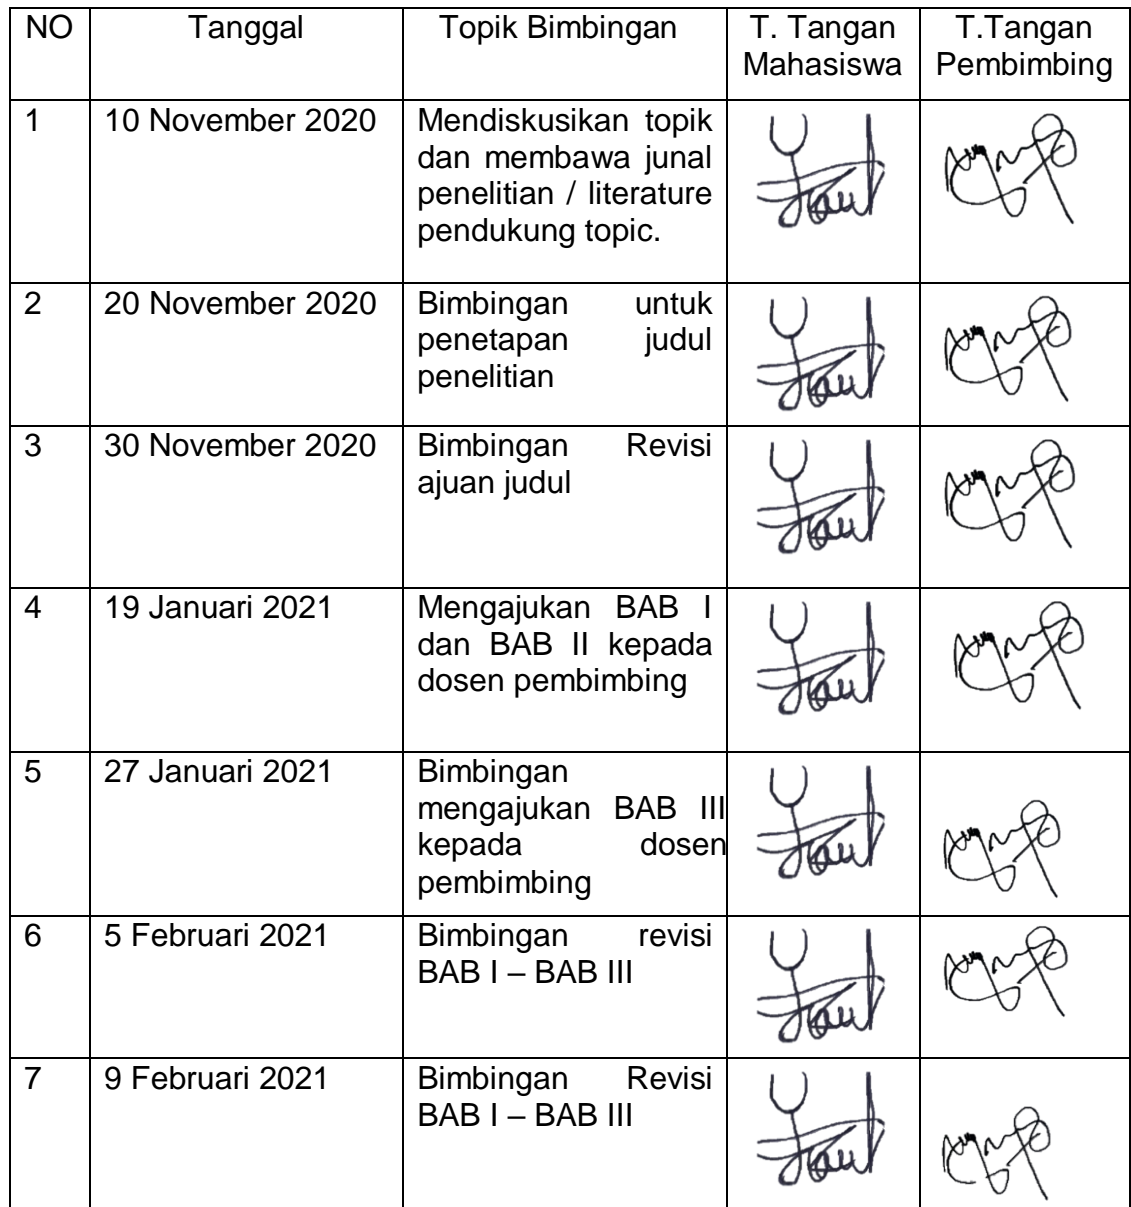 NO Tanggal Topik Bimbingan T. Tangan T.Tangan
Mahasiswa Pembimbing
1 10 November 2020 Mendiskusikan topik
dan membawa junal
penelitian / literature
pendukung topic.
2 20 November 2020 Bimbingan untuk
penetapan judul
penelitian
3 30 November 2020 Bimbingan Revisi
ajuan judul
4 19 Januari 2021 Mengajukan BAB I
dan BAB II kepada
dosen pembimbing
5 27 Januari 2021 Bimbingan
mengajukan BAB III
kepada dosen
pembimbing
6 5 Februari 2021 Bimbingan revisi
BAB I – BAB III
7 9 Februari 2021 Bimbingan Revisi
BAB I – BAB III